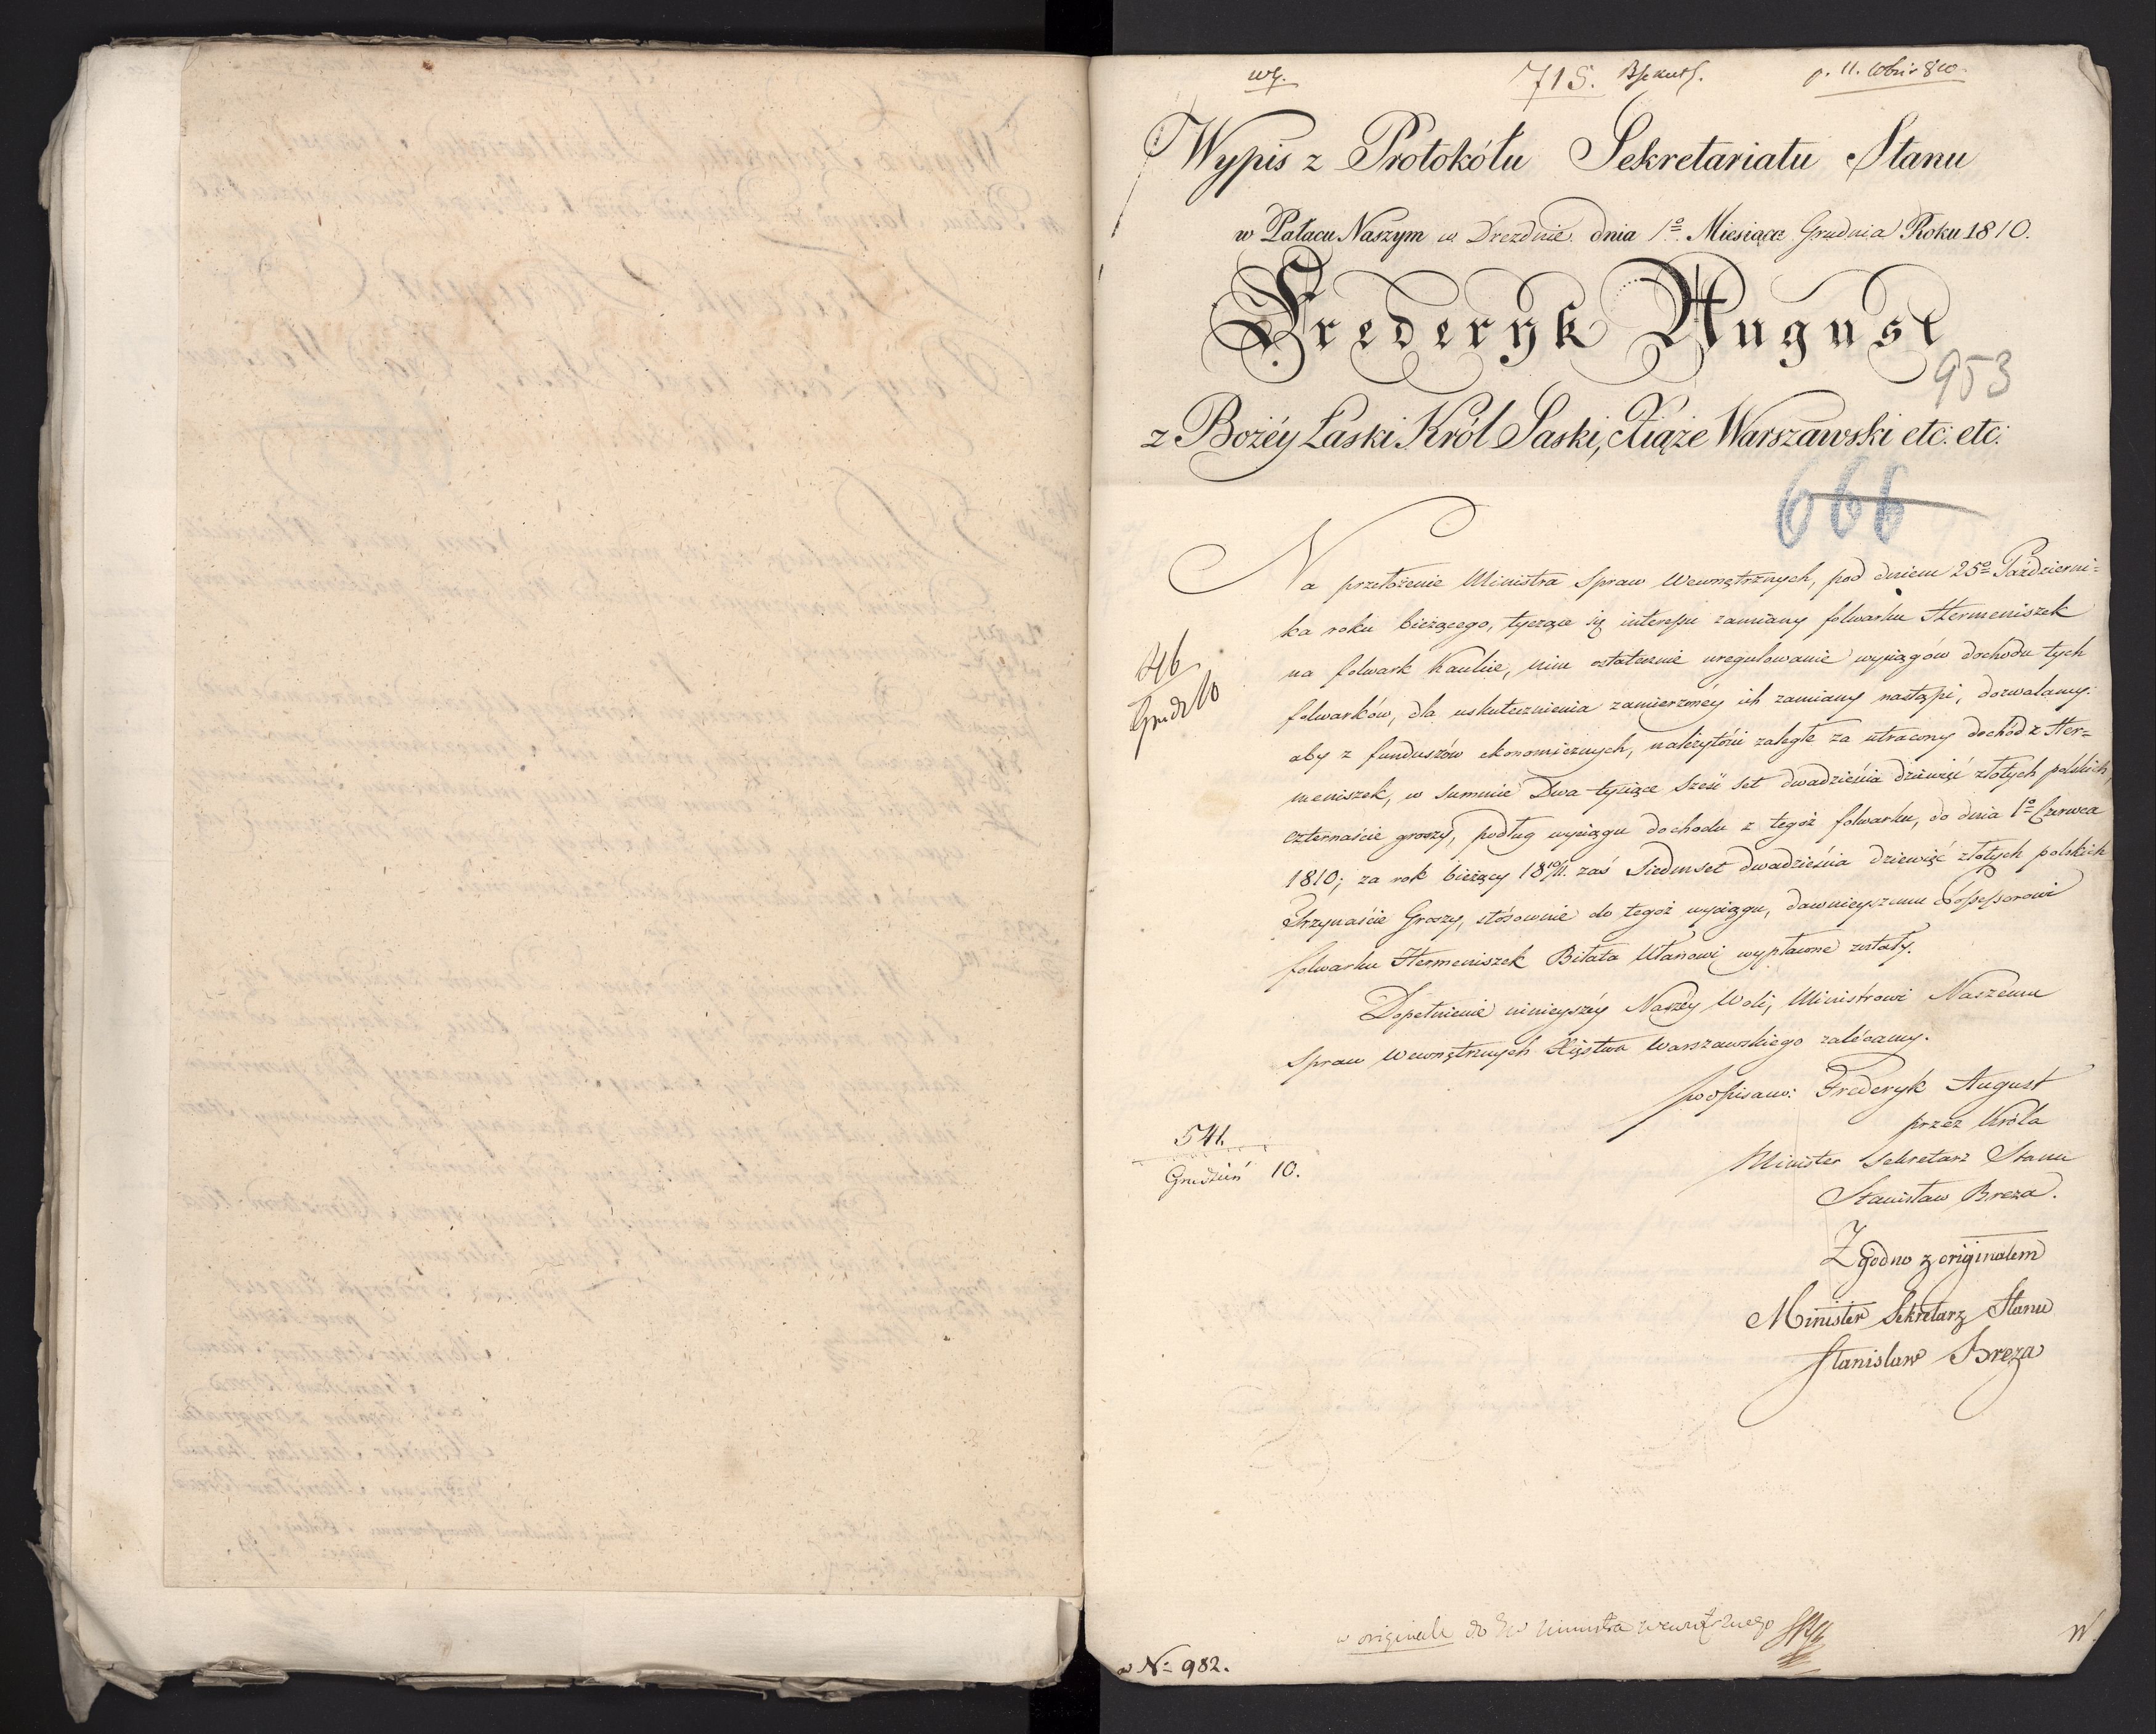 715. p. 11. Xbris 810.
Wypis z Protokółu Sekretariatu Stanu
w Pałacu Naszym w Dreznie dnia 1º Miesiąca Grudnia Roku 1810.
Frederyk August
953
z Bożéy Łaski Król Saski, Xiąże Warszawski etc: etc:
666
Na przełożenie Ministra Spraw Wewnętrznych, pod dniem 25º Październi=
ka roku bieżącego, tyczące się interessu zamiany folwarku Hermeniszek
na folwark Kaukie, nim ostatecznie uregulowanie wyciągów dochodu tych
folwarków, dla uskutecznienia zamierzonéy ich zamiany nastąpi, dozwalamy
aby z funduszów ekonomicznych, należytości zaległe za utracony dochód z Her=
meniszek, w summie Dwa tysiące sześć set dwadzieścia dziewięć złotych polskich,
czternaście groszy, podług wyciągu dochodu z tegoż folwarku, do dnia 1º Czerwca
1810; za rok bieżący 1810/11. zaś Siedmset dwadzieścia dziewięć złotych polskich
Trzynaście Groszy, stósownie do tegoż wyciągu, dawnieyszemu Possessorowi
folwarku Hermeniszek Bilała Ułanowi wypłacone zostały.
Dopełnienie ninieyszéy Naszéy Woli, Ministrowi Naszemu
Spraw Wewnętrznych Xięstwa Warszawskiego zalécamy.
46
Grud: 10
podpisano: Frederyk August
przez Króla
Minister Sekretarz Stanu
Stanisław Breza.
541.
Grudzień 10.
Zgodno z originałem
Minister Sekretarz Stanu
Stanisław Breza
w originale do Ministra wewnętrznego
w Nº 982.
W.